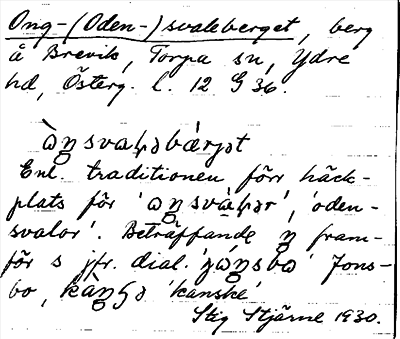 Ong-(Oden-)svaleberget, berg
å Brevik, Torpa sn, Ydre
hd, Österg. l. 12 G 36.
Enl. traditionen förr häck-
plats för ', 'oden-
svalor'. Beträffande fram-
för s jfr. dial. Jons-
bo, 'kanske'
Stig Stjärne 1930.